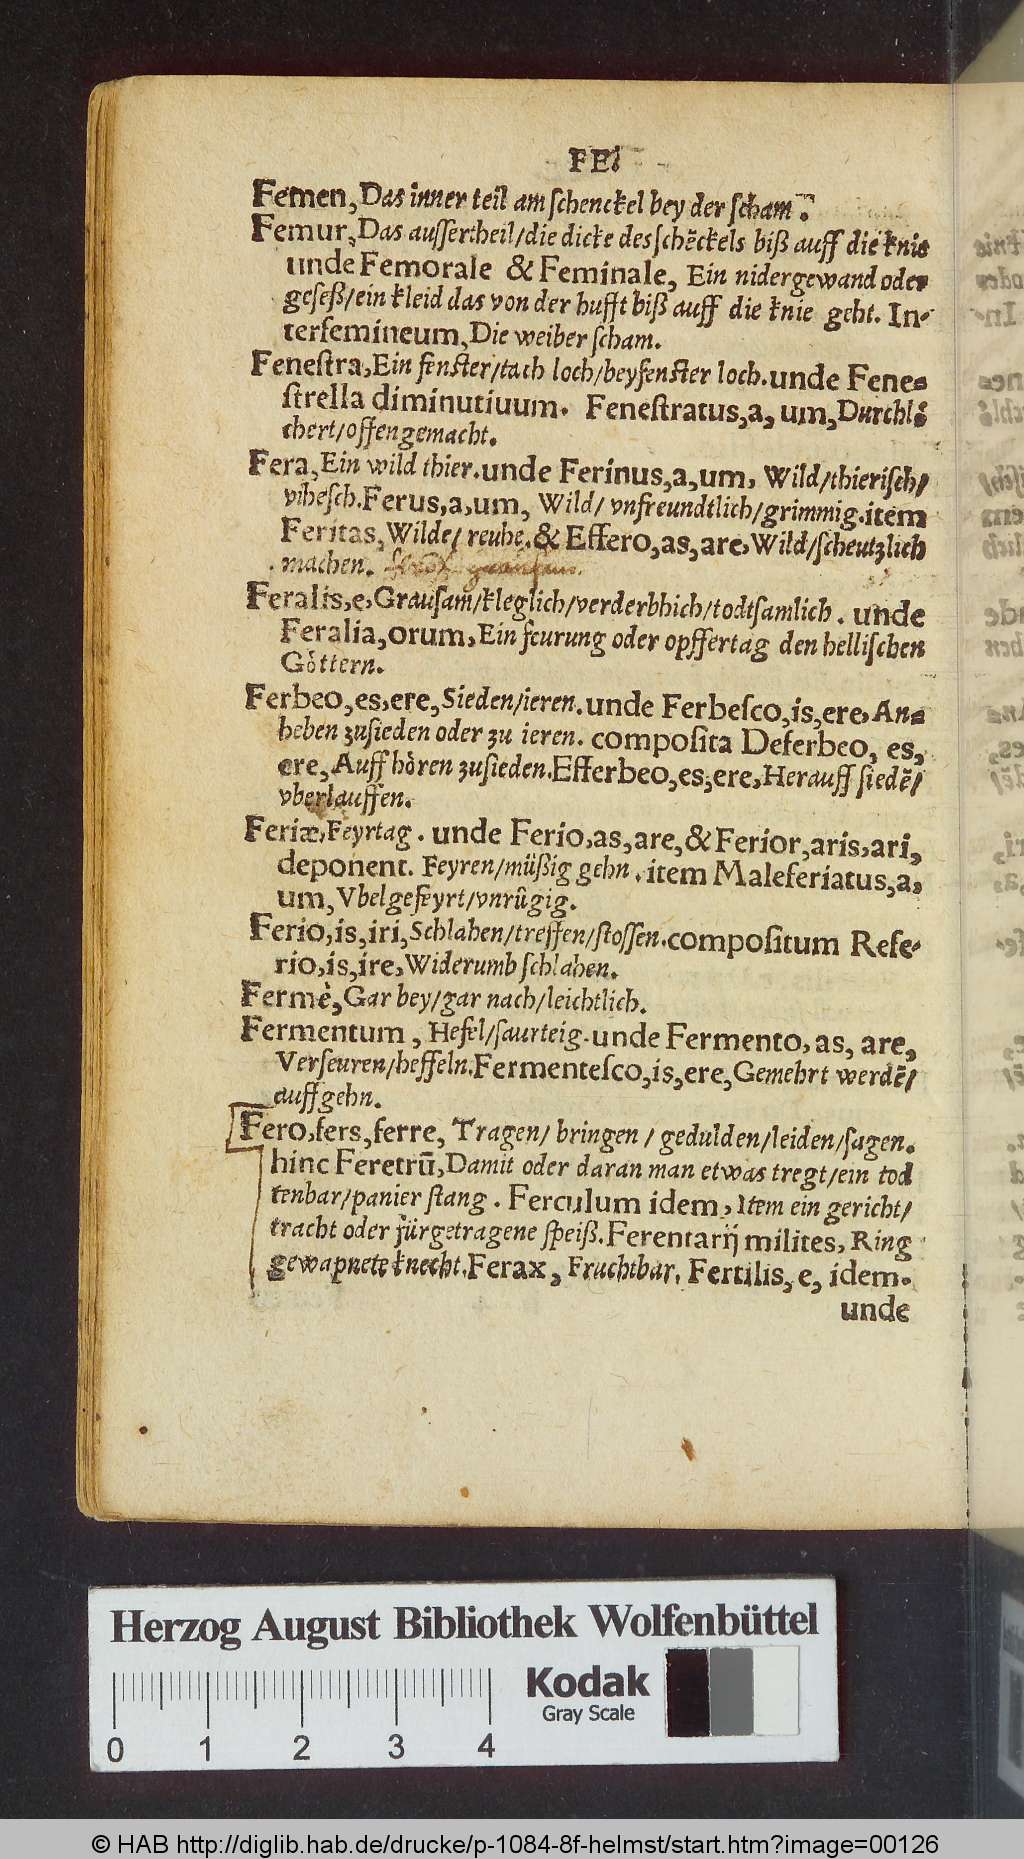 FE.
Femen, Das inner teil am schenckel bey der scham.
Femur, Das aussertheil/die dicke des schẽckels biß auff die knie
unde Femorale & Feminale, Ein nidergewand oder
geseß/ein kleid das von der hufft biß auff die knie geht. In-
terfemineum, Die weiber scham.
Fenestra, Ein fenster/tach loch/beyfenster loch. unde Fene-
strella diminutiuum. Fenestratus, a, um, Durchlö
chert/offengemacht.
Fera, Ein wild thier. unde Ferinus, a, um, Wild/thierisch/
vihesch. Ferus, a, um, Wild/ vnfreundtlich/grimmig. item
Feritas, Wilde/ reuhe. & Effero, as, are, Wild/scheutzlich
machen.
Feralis, e, Grausam/kleglich/verderbhich/todtsamlich. unde
Feralia, orum, Ein feurung oder opffertag den hellischen
Göttern.
Ferbeo, es, ere, Sieden/ieren. unde Ferbesco, is, ere, An-
heben zusieden oder zu ieren. composita Deferbeo, es,
ere, Auff hören zusieden. Efferbeo, es, ere, Herauff siedẽ/
vberlauffen.
Feriæ, Feyrtag. unde Ferio, as, are, & Ferior, aris, ari,
deponent. Feyren/müßig gehn. item Maleferiatus, a,
um, Vbelgefeyrt/vnrûgig.
Ferio, is, iri, Schlahen/treffen/stossen. compositum Refe-
rio, is, ire, Widerumb schlahen.
Fermè, Gar bey/gar nach/leichtlich.
Fermentum, Hefel/saurteig. unde Fermento, as, are,
Verseuren/heffeln. Fermentesco, is, ere, Gemehrt werdẽ/
auffgehn.
Fero, fers, ferre, Tragen/ bringen / gedulden/leiden/sagen.
hinc Feretrũ, Damit oder daran man etwas tregt/ein tod
tenbar/panier stang. Ferculum idem, Item ein gericht/
tracht oder fürgetragene speiß. Ferentarij milites, Ring
gewapnete knecht. Ferax, Fruchtbar. Fertilis, e, idem.
unde
Herzog August Bibliothek Wolfenbüttel
Kodak
Gray Scale
0 1 2 3 4
© HAB http://diglib.hab.de/drucke/p-1084-8f-helmst/start.htm?image=00126